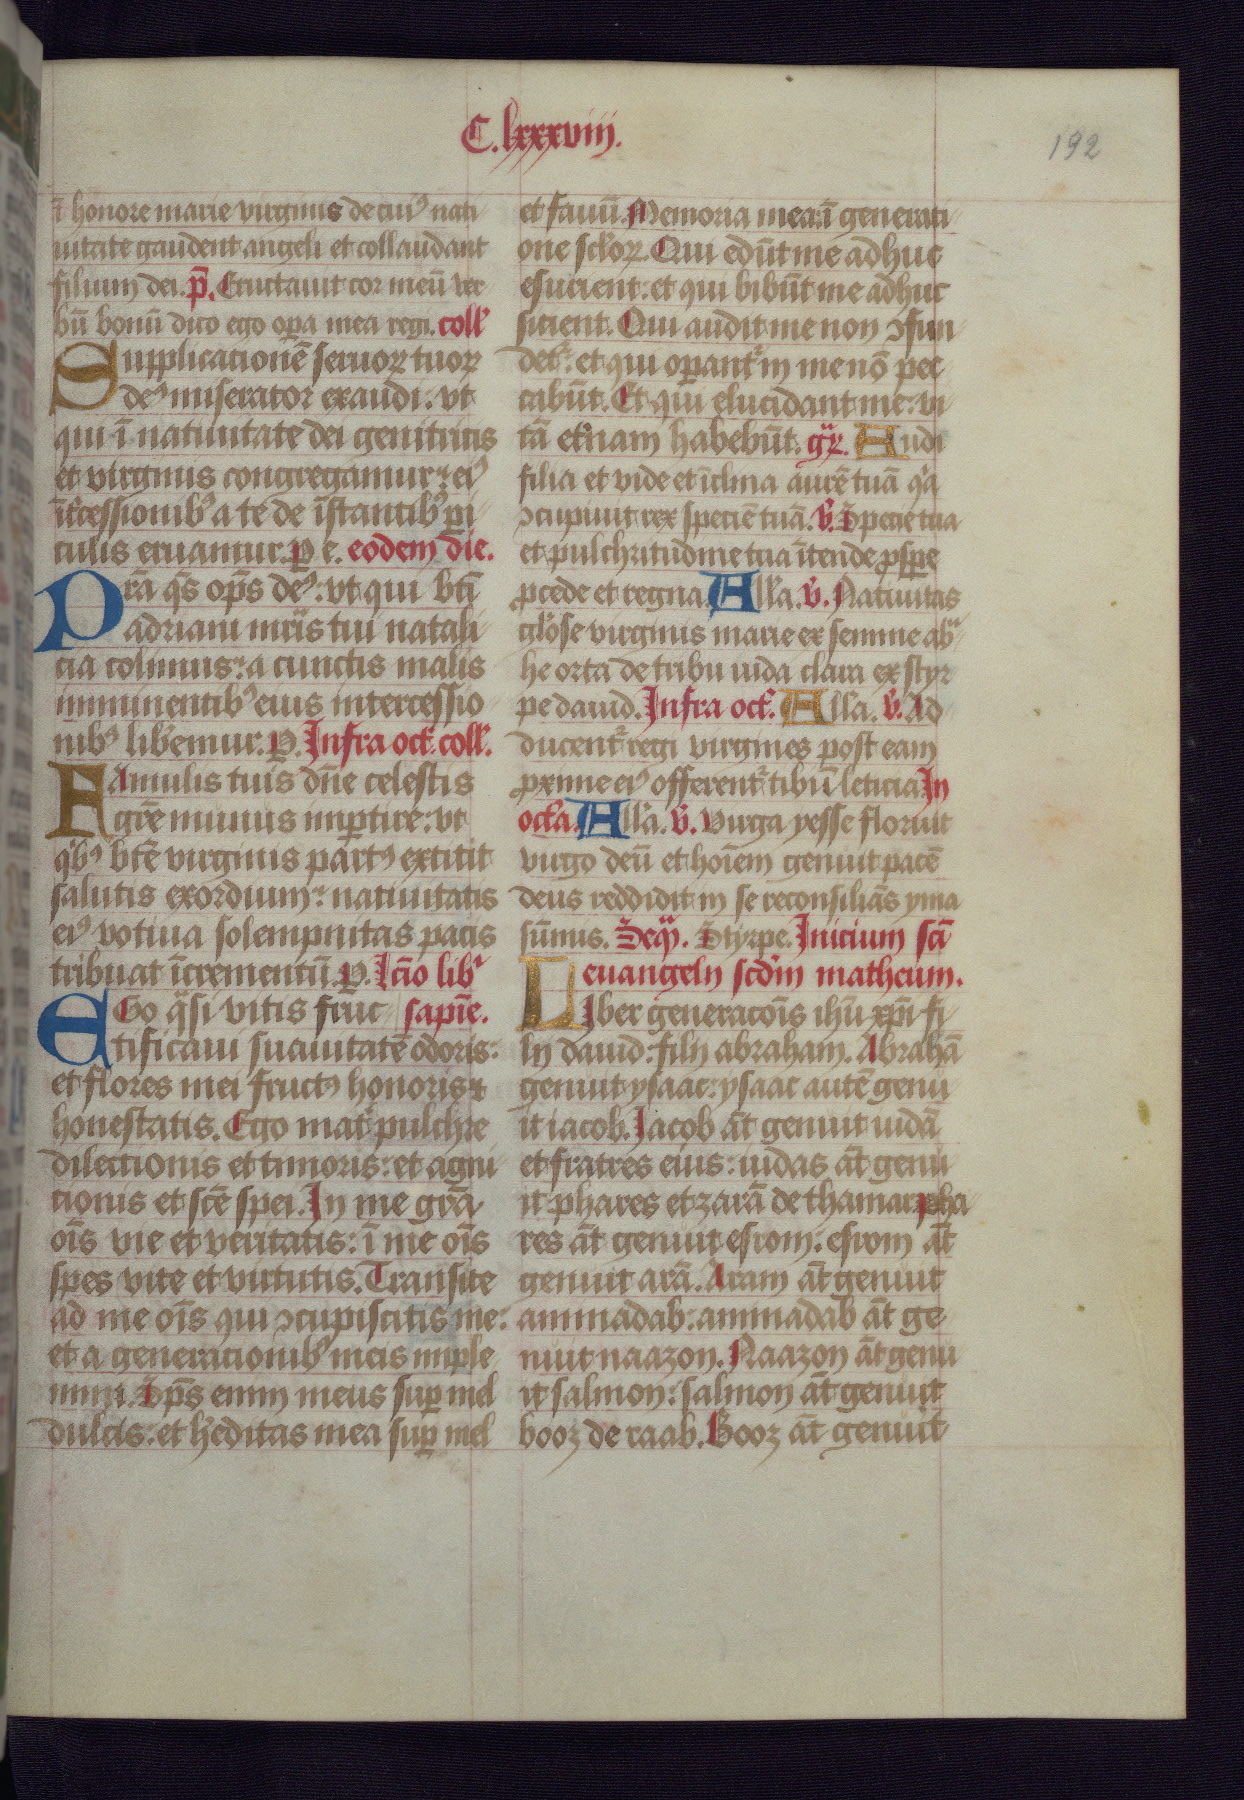 C.lxxxviij.
192
ī honore marie virginis de cuiꝰ nati
uitate gaudent angeli et collaudant
filium dei. pˢ. Eructauit cor meū ver
bū bonū dico ego oꝑa mea regi. coll'
Supplicationē seruoꝝ tuoꝝ
deꝰ miserator exaudi: vt
qui ī natiuitate dei genitricis
et virginis congregamur: eiꝰ
īt̄cessionibꝰ a te de īstantibꝰ ꝑi
culis eruamur. P e. eodem die.
Pra q̄s op̄s deꝰ: vt qui bt̄i
adriani mr̄is tui natali
cia colimus: a cunctis malis
imminentibꝰ eius intercessio
nibꝰ lib̄emur. P. Infra oct̄. coll'.
FAmulis tuis dn̄e celestis
gr̄e munus imꝑtire: vt
q̇bꝰ bt̄e virginis partꝰ extitit
salutis exordium: natiuitatis
eiꝰ votiua solempnitas pacis
tribuat īcrementū. P. Lc̄io libr̄
EGo q̄si vitis fruc sapīe.
tificaui suauitatē odoris:
et flores mei fructꝰ honoris ⁊
honestatis. Ego mat̄ pulchre
dilectionis et timoris: et agni
tionis et sc̄e spei. In me gr̄a
oīs vie et veritatis: ī me oīs
spes vite et virtutis. Transite
ad me oīs qui ꝯcupiscitis me:
et a generationibꝰ meis imple
mini. Sp̄s enim meus suꝑ mel
dulcis: et h̄editas mea suꝑ mel
et fauū. Memoria mea: ī generati
one sc̄loꝝ. Qui edūt me adhuc
esurient: et qui bibūt me adhuc
sitient. Qui audit me non ꝯfun
det̄: et qui oꝑant̄ in me nō pec
cabūt. Et qui elucidant me: vi
tā et̄nam habebūt. gr̄. Audi
filia et vide et īclina aurē tuā q̇a
ꝯcupiuit rex speciē tuā. v̄. Specie tua
et pulchritudine tua ītende ꝓspe
ꝓcede et regna. All'a. v̄. Natiuitas
gl'ose virginis marie ex semine abͣ
he orta de tribu iuda clara ex styr
pe dauid. Infra oct̄. All'a. v̄. Ad
ducent̄ regi virgines post eam
ꝓxime eiꝰ offerent̄ tibi ī leticia In
oct̄a. All'a. v̄. Virga yesse floruit
virgo deū et hoīem genuit pacē
deus reddidit in se reconsiliās yma
sūmis. Seq̄. Styrpe. Inicium sc̄i
euangelij scd̄m matheum.
LIber generacōis ihū xp̄i fi
lij dauid: filij abraham. Abrahā
genuit ysaac: ysaac autē genu
it iacob. Jacob āt genuit iudā
et fratres eius: iudas āt genu
it phares et zarā de thamar. Pha
res āt genuit esrom: esrom āt
genuit arā. Aram āt genuit
aminadab: aminadab āt ge
nuit naazon. Naazon āt genu
it salmon: salmon āt genuit
booz de raab. Booz āt genuit